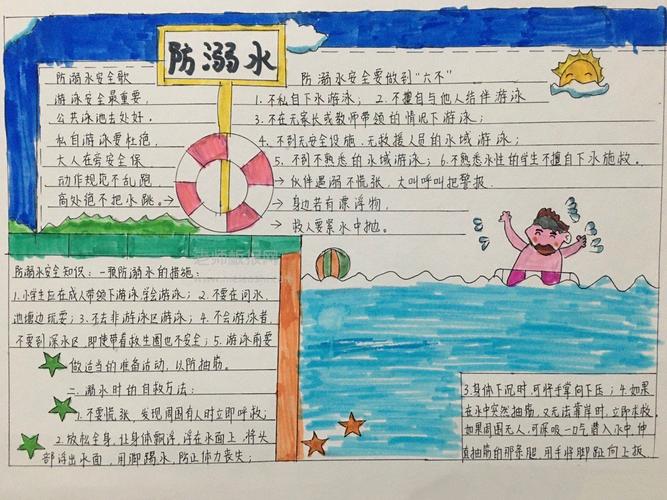 防溺水
防溺水安全歌
游泳安全最重要,
公共泳池去处好.
私自游泳要杜绝,
大人在旁安全保
动作规范不乱跑,
高处绝不把水跳。
防溺水安全要做到“六不”
1.不私自下水游泳; 2.不擅自与他人结伴游泳
3.不在无家长或教师带领的情况下游泳;
4.不到无安全设施、无救援人员的水域游泳;
5.不到不熟悉的水域游泳; 6.不熟悉水性的学生不擅自下水施救.
伙伴遇溺不慌张, 大叫呼叫把警报.
身边若有漂浮物,
救人要紧水中抛。
老师板报网
防溺水安全知识: 一预防溺水的措施:
1.小学生应在成人带领下游泳学会游泳; 2.不要在河水,
池塘边玩耍; 3.不去非游泳区游泳; 4.不会游泳者
不要到深水区,即使带着救生圈也不安全; 5.游泳前要
做适当的准备活动,以防抽筋。
二.溺水时的自救方法:
1.不要慌张,发现周围有人时立即呼救;
2.放松全身,让身体飘浮.浮在水面上,将头
部浮出水面,用脚踢水,防止体力丧失;
3.身体下沉时,可将手掌向下压; 4.如果
在水中突然抽筋,又无法靠岸时,立即求救.
如果周围无人,可深吸一口气潜入水中,伸
直抽筋的那条腿,用手将脚趾向上扳